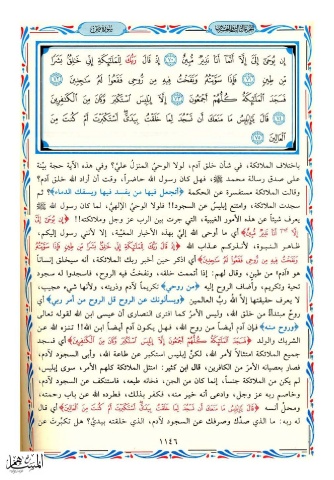 إِن يُوحَىٰ إِلَيَّ إِلَّا أَنَّمَا أَنَا۠ نَذِيرٌ مُّبِينٌ ۝٧٠ إِذْ قَالَ رَبُّكَ لِلْمَلَٰٓئِكَةِ إِنِّي خَٰلِقٌۢ بَشَرًا
مِّن طِينٍ ۝٧١ فَإِذَا سَوَّيْتُهُۥ وَنَفَخْتُ فِيهِ مِن رُّوحِي فَقَعُوا۟ لَهُۥ سَٰجِدِينَ ۝٧٢
فَسَجَدَ ٱلْمَلَٰٓئِكَةُ كُلُّهُمْ أَجْمَعُونَ ۝٧٣ إِلَّآ إِبْلِيسَ ٱسْتَكْبَرَ وَكَانَ مِنَ ٱلْكَٰفِرِينَ
۝٧٤ قَالَ يَٰٓإِبْلِيسُ مَا مَنَعَكَ أَن تَسْجُدَ لِمَا خَلَقْتُ بِيَدَيَّ أَسْتَكْبَرْتَ أَمْ كُنتَ مِنَ
ٱلْعَالِينَ ۝٧٥
باختلاف الملائكة، في شأن خلق آدم، لولا الوحيُ المنزلُ عليَّ؟ وفي هذه الآية حجة بيّنة
على صدق رسالة محمد ﷺ، فهل كان رسول الله حاضراً، وقت أن أراد الله خلق آدم؟
وقالت الملائكة مستفسرة عن الحكمة ﴿أتجعل فيها من يفسد فيها ويسفك الدماء﴾؟ ثم
سجدت الملائكة، وامتنع إبليس عن السجود!! فلولا الوحيُ الإلهيُّ، لما كان رسول الله ﷺ
يعرف شيئاً عن هذه الأمور الغيبية، التي جرت بين الرب عز وجل وملائكته!! ﴿إِن يُوحَىٰ إِلَيَّ
إِلَّا أَنَّمَا أَنَا۠ نَذِيرٌ مُّبِينٌ﴾ أي ما أوحى الله إليَّ بهذه الأخبار المغيّبة، إلا لأنني رسول إليكم،
ظاهر النبوة، لأنذركم عذاب الله ﴿إِذْ قَالَ رَبُّكَ لِلْمَلَٰٓئِكَةِ إِنِّي خَٰلِقٌۢ بَشَرًا مِّن طِينٍ فَإِذَا سَوَّيْتُهُۥ
وَنَفَخْتُ فِيهِ مِن رُّوحِي فَقَعُوا۟ لَهُۥ سَٰجِدِينَ﴾ أي اذكر حين أخبر ربك الملائكة، أنه سيخلق إنساناً
هو «آدم» من طين، وقال لهم: إذا أتممت خلقه، ونفختُ فيه الروح، فاسجدوا له سجود
تحية وتكريم، وأضاف الروح إليه ﴿من روحي﴾ تكريماً لآدم وذريته، ولأنها شيء عجيب،
لا يعرف حقيقتها إلَّا اللَّهُ ربُّ العالمين ﴿ويسألونك عن الروح قل الروح من أمر ربي﴾ أي
روحٌ مبتدأةٌ من خلق الله، وليس الأمر كما افترى النصارى أن عيسى ابن الله لقوله تعالى
﴿وروح منه﴾ فإن آدم أيضاً من روح الله، فهل يكون آدم أيضاً ابن الله!! تنزه الله عن
الشريك والولد ﴿فَسَجَدَ ٱلْمَلَٰٓئِكَةُ كُلُّهُمْ أَجْمَعُونَ إِلَّآ إِبْلِيسَ ٱسْتَكْبَرَ وَكَانَ مِنَ ٱلْكَٰفِرِينَ﴾ أي فسجد
جميع الملائكة امتثالاً لأمر الله، لكنَّ إبليس استكبر عن طاعة الله، وأبى السجود لآدم،
فصار بعصيانه الأمرَ من الكافرين، قال ابن كثير: امتثل الملائكة كلهم الأمر، سوى إبليس،
لم يكن من الملائكة جنساً، إنما كان من الجن، فخانه طبعه، فاستنكف عن السجود لآدم،
وخاصم ربه عز وجل، وادعى أنه خير منه، فكفر بذلك، فطرده الله عن باب رحمته،
ومحلِّ أنسه ﴿قَالَ يَٰٓإِبْلِيسُ مَا مَنَعَكَ أَن تَسْجُدَ لِمَا خَلَقْتُ بِيَدَيَّ أَسْتَكْبَرْتَ أَمْ كُنتَ مِنَ ٱلْعَالِينَ﴾ أي قال
له ربه: ما الذي صدَّك وصرفك عن السجود لآدم، الذي خلقته بيديَّ؟ هل تكبَّرتَ عن
١١٤٦